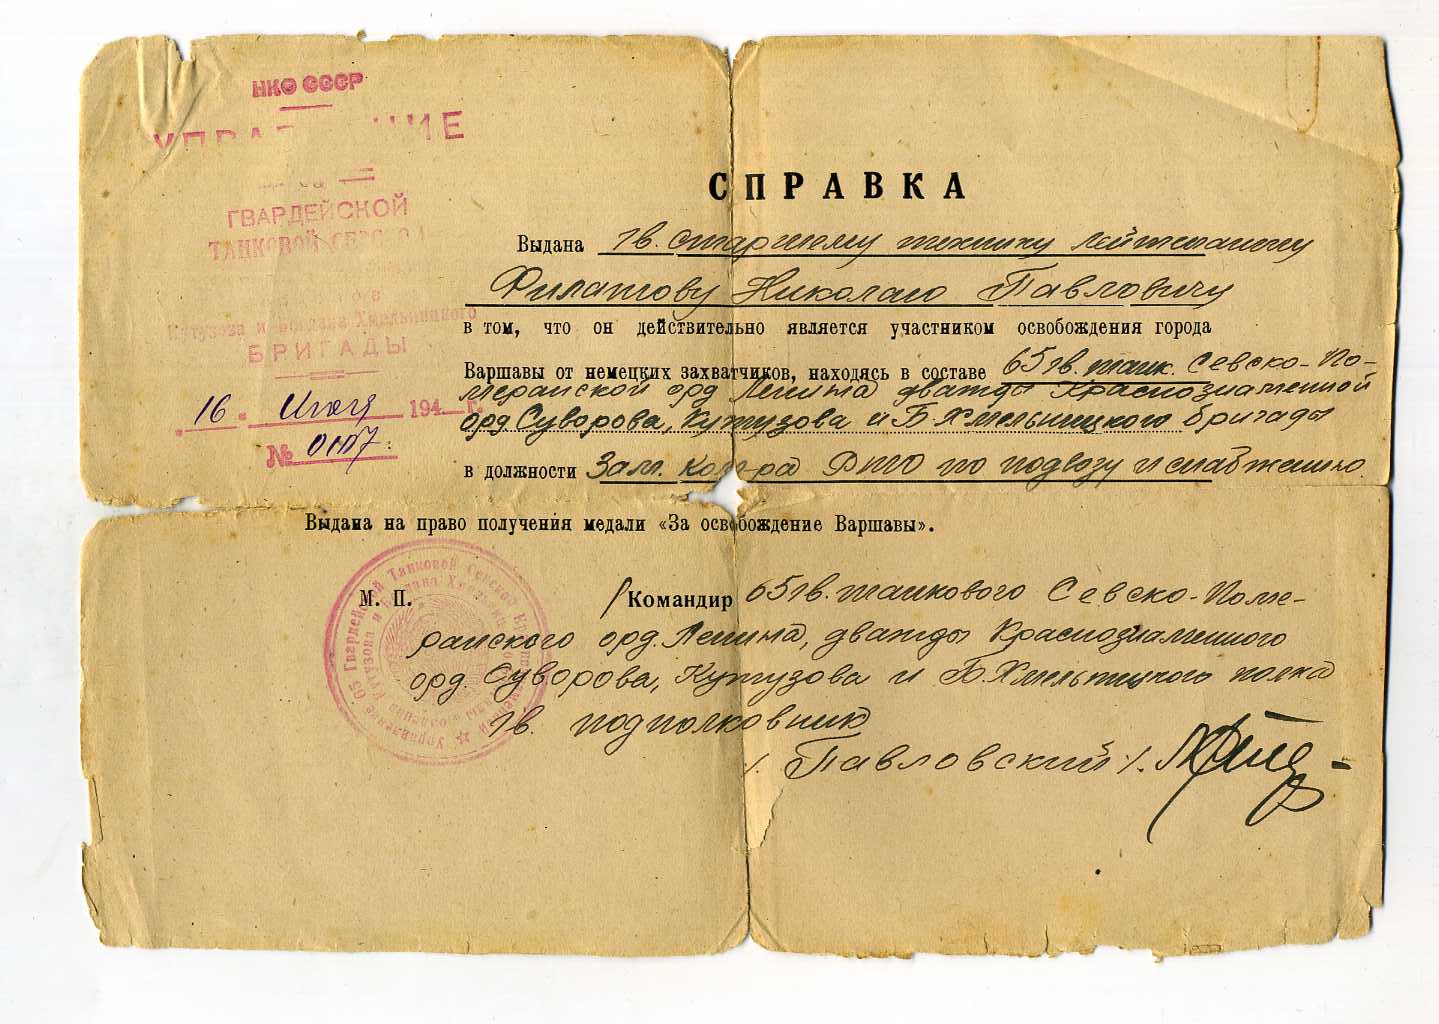 НКО СССР
ГВАРДЕЙСКОЙ
ТАНКОВОЙ
Кутузова и Богдана Хмельницкого
БРИГАДЫ
16 194 г.
№
СПРАВКА
Выдана гв. старшему технику лейтенанту
Филатову Николаю Павловичу
в том, что он действительно является участником освобождения города
Варшавы от немецких захватчиков, находясь в составе 65 гв. танк. Севско-По-
меранской орд Ленина дважды Краснознаменной
орд Суворова, Кутузова и Б Хмельницкого бригады
в должности Зам. ком-ра РТО по подвозу и снабжению
Выдана на право получения медали «За освобождение Варшавы».
М. П.
65 Гвардейской Танковой Севской
Командир 65 гв. танкового Севско-Поме-
ранского орд. Ленина, дважды Краснознаменного
орд. Суворова, Кутузова и Б. Хмельницкого полка
гв. подполковник
/. Павловский ./.